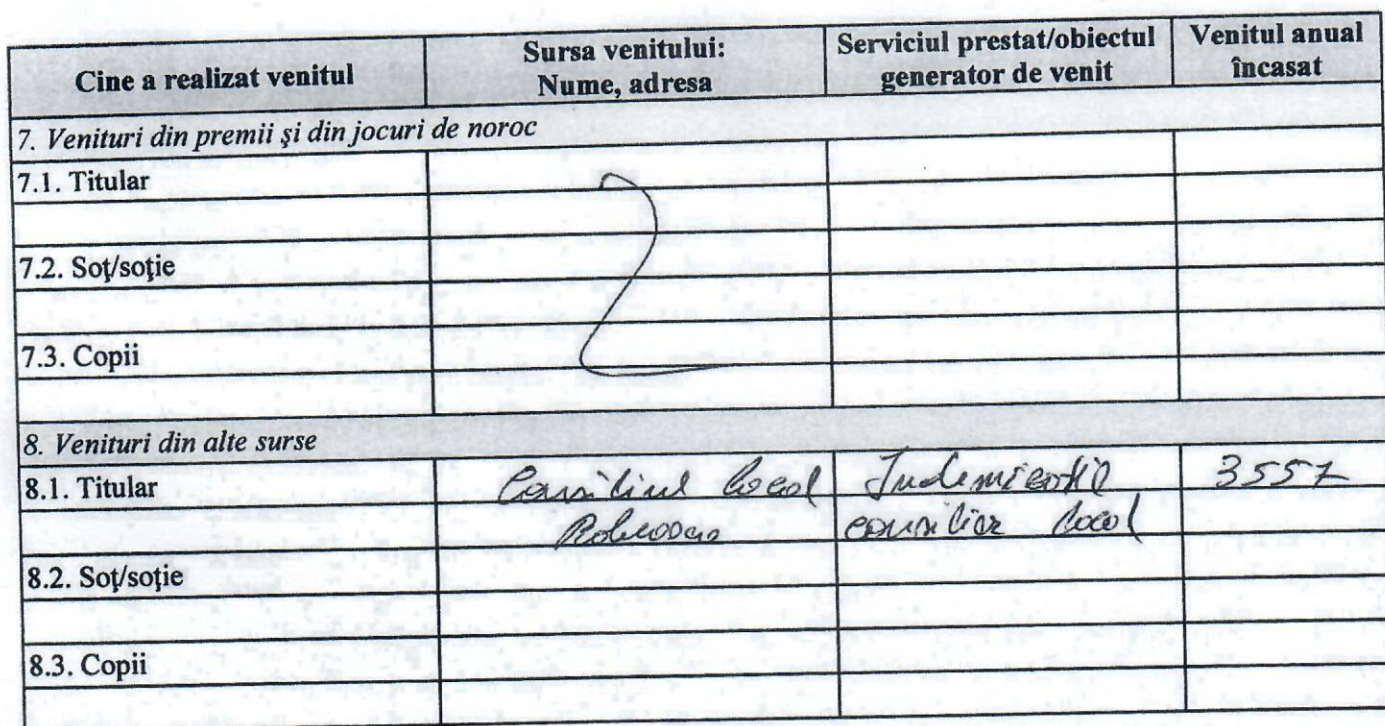 Cine a realizat venitul
Sursa venitului:
Nume, adresa
Serviciul prestat/obiectul
generator de venit
Venitul anual
încasat
7. Venituri din premii şi din jocuri de noroc
7.1. Titular
7.2. Soţ/soţie
7.3. Copii
8. Venituri din alte surse
8.1. Titular
Consiliul Local
Indemizatie
consilier local
3557
8.2. Soţ/soţie
8.3. Copii